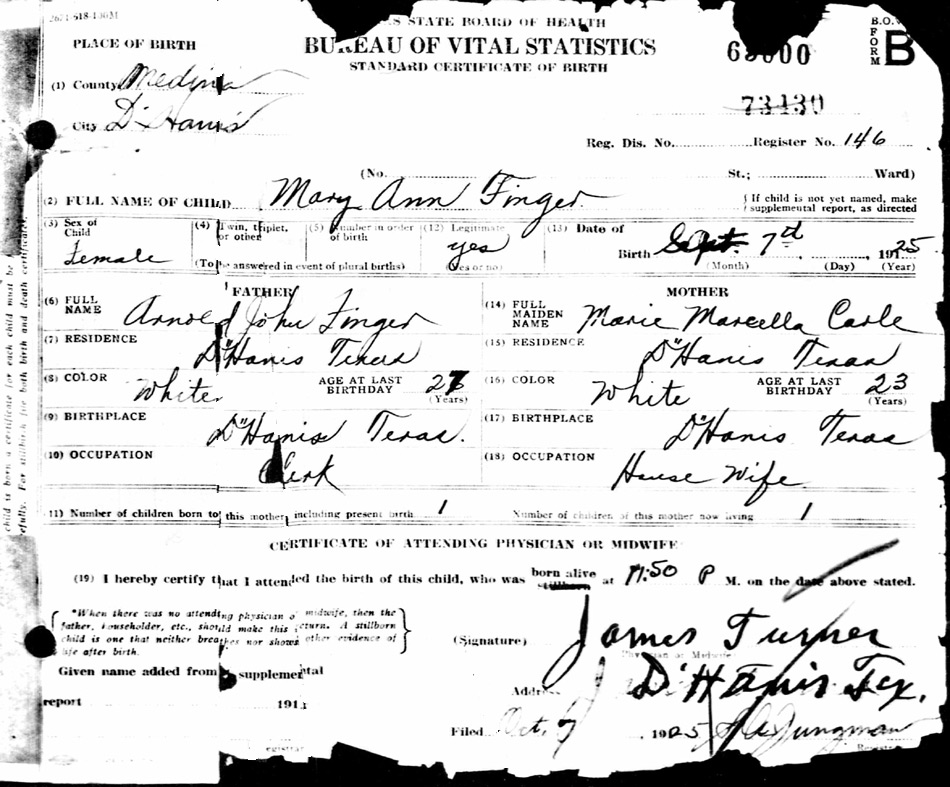 2621-618-100M
S STATE BOARD OF HEALTH
B.O.V.
PLACE OF BIRTH
BUREAU OF VITAL STATISTICS
FORM B
STANDARD CERTIFICATE OF BIRTH
(1) County Medina
73430
City D'Hanis
Reg. Dis. No. Register No. 146
(No. St.; Ward)
(2) FULL NAME OF CHILD Mary Ann Finger
{ If child is not yet named, make supplemental report, as directed
(3) Sex of Child Female
(4) Twin, triplet, or other
(5) Number in order of birth
(To be answered in event of plural births)
(12) Legitimate yes (Yes or no)
(13) Date of Birth Sept. 7th 1925
(Month) (Day) (Year)
FATHER
MOTHER
(6) FULL NAME Arnold John Finger
(14) FULL MAIDEN NAME Marie Marcella Carle
(7) RESIDENCE D'Hanis Texas
(15) RESIDENCE D'Hanis Texas
(8) COLOR White AGE AT LAST BIRTHDAY 27 (Years)
(16) COLOR White AGE AT LAST BIRTHDAY 23 (Years)
(9) BIRTHPLACE D'Hanis Texas.
(17) BIRTHPLACE D'Hanis Texas
(10) OCCUPATION Clerk
(18) OCCUPATION House Wife
(11) Number of children born to this mother, including present birth 1
Number of children of this mother now living 1
CERTIFICATE OF ATTENDING PHYSICIAN OR MIDWIFE
(19) I hereby certify that I attended the birth of this child, who was born alive stillborn at 11:50 P M. on the date above stated.
{ *When there was no attending physician or midwife, then the
father, householder, etc., should make this return. A stillborn
child is one that neither breathes nor shows other evidence of
life after birth. }
(Signature) James Turner
Physician or Midwife
Given name added from supplemental
Address D'Hanis Tex.
report 191
Filed Oct. 7, 1925 Jungman
Registrar
Registrar
child is born a certificate for each child must be